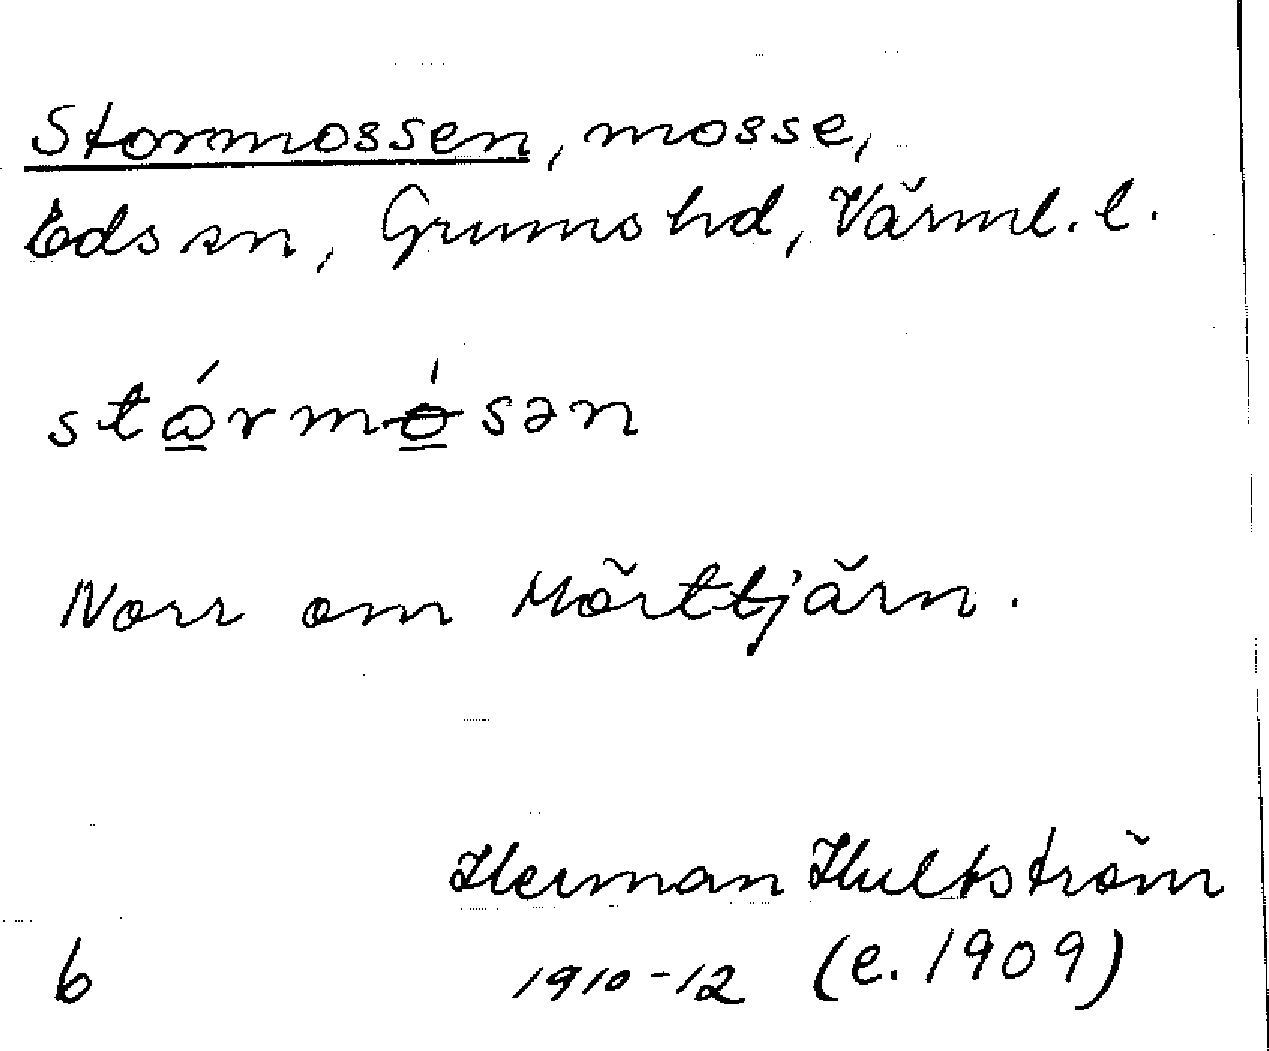 Stormossen, mosse,
Eds sn, Grums hd, Värml. l.
stɷ́rmɵ́sən
Norr om Mörttjärn.
Herman Hultström
6 1910-12 (e. 1909)